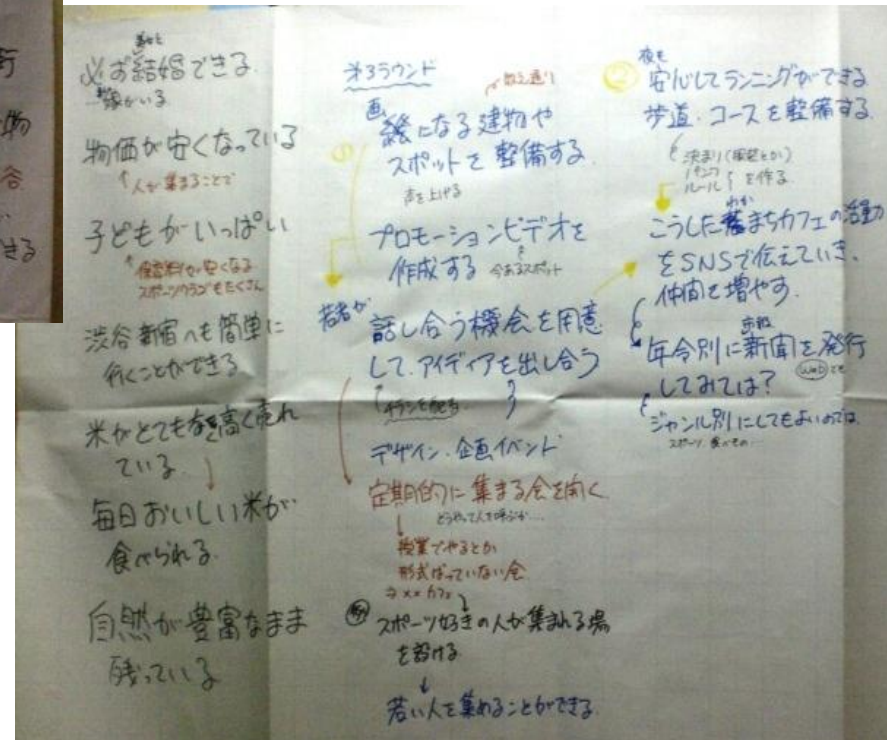 行
物
谷
きる
必ず結婚できる
嫁がいる
物価が安くなっている
↑人が集まることで
子どもがいっぱい
↑保育料が安くなる
スポーツクラブもたくさん
渋谷新宿へも簡単に
行くことができる
米がとても高く売れ
ている
↓
毎日おいしい米が
食べられる
自然が豊富なまま
残っている
第3ラウンド
絵になる建物や
スポットを整備する
声を上げる
プロモーションビデオを
作成する 今あるスポット
若者が
話し合う機会を用意
して、アイディアを出し合う
チラシを配る
デザイン・企画イベント
定期的に集まる会を開く
どうやって人を呼ぶか…
↓
授業でやるとか
形式ばっていない会
スポーツ好きの人が集まれる場
を設ける
↓
若い人を集めることができる
②
夜も
安心してランニングができる
歩道・コースを整備する
決まり(服装とか)
ルール
を作る
わか
こうした若まちカフェの活動
をSNSで伝えていき、
仲間を増やす
市報
年令別に新聞を発行
Webでも
してみては?
ジャンル別にしてもよいのでは
スポーツ、食べもの…